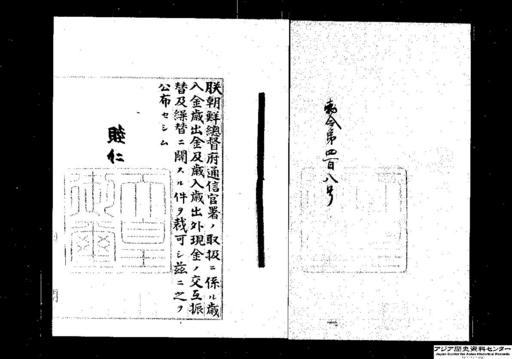 勅令第四百八号
朕朝鮮總督府通信官署ノ取扱ニ係ル歳
入金歳出金及歳入歳出外現金ノ交互振
替及繰替ニ關スル件ヲ裁可シ茲ニ之ヲ
公布セシム
睦仁
天皇
御璽
アジア歴史資料センター
Japan Center for Asian Historical Records